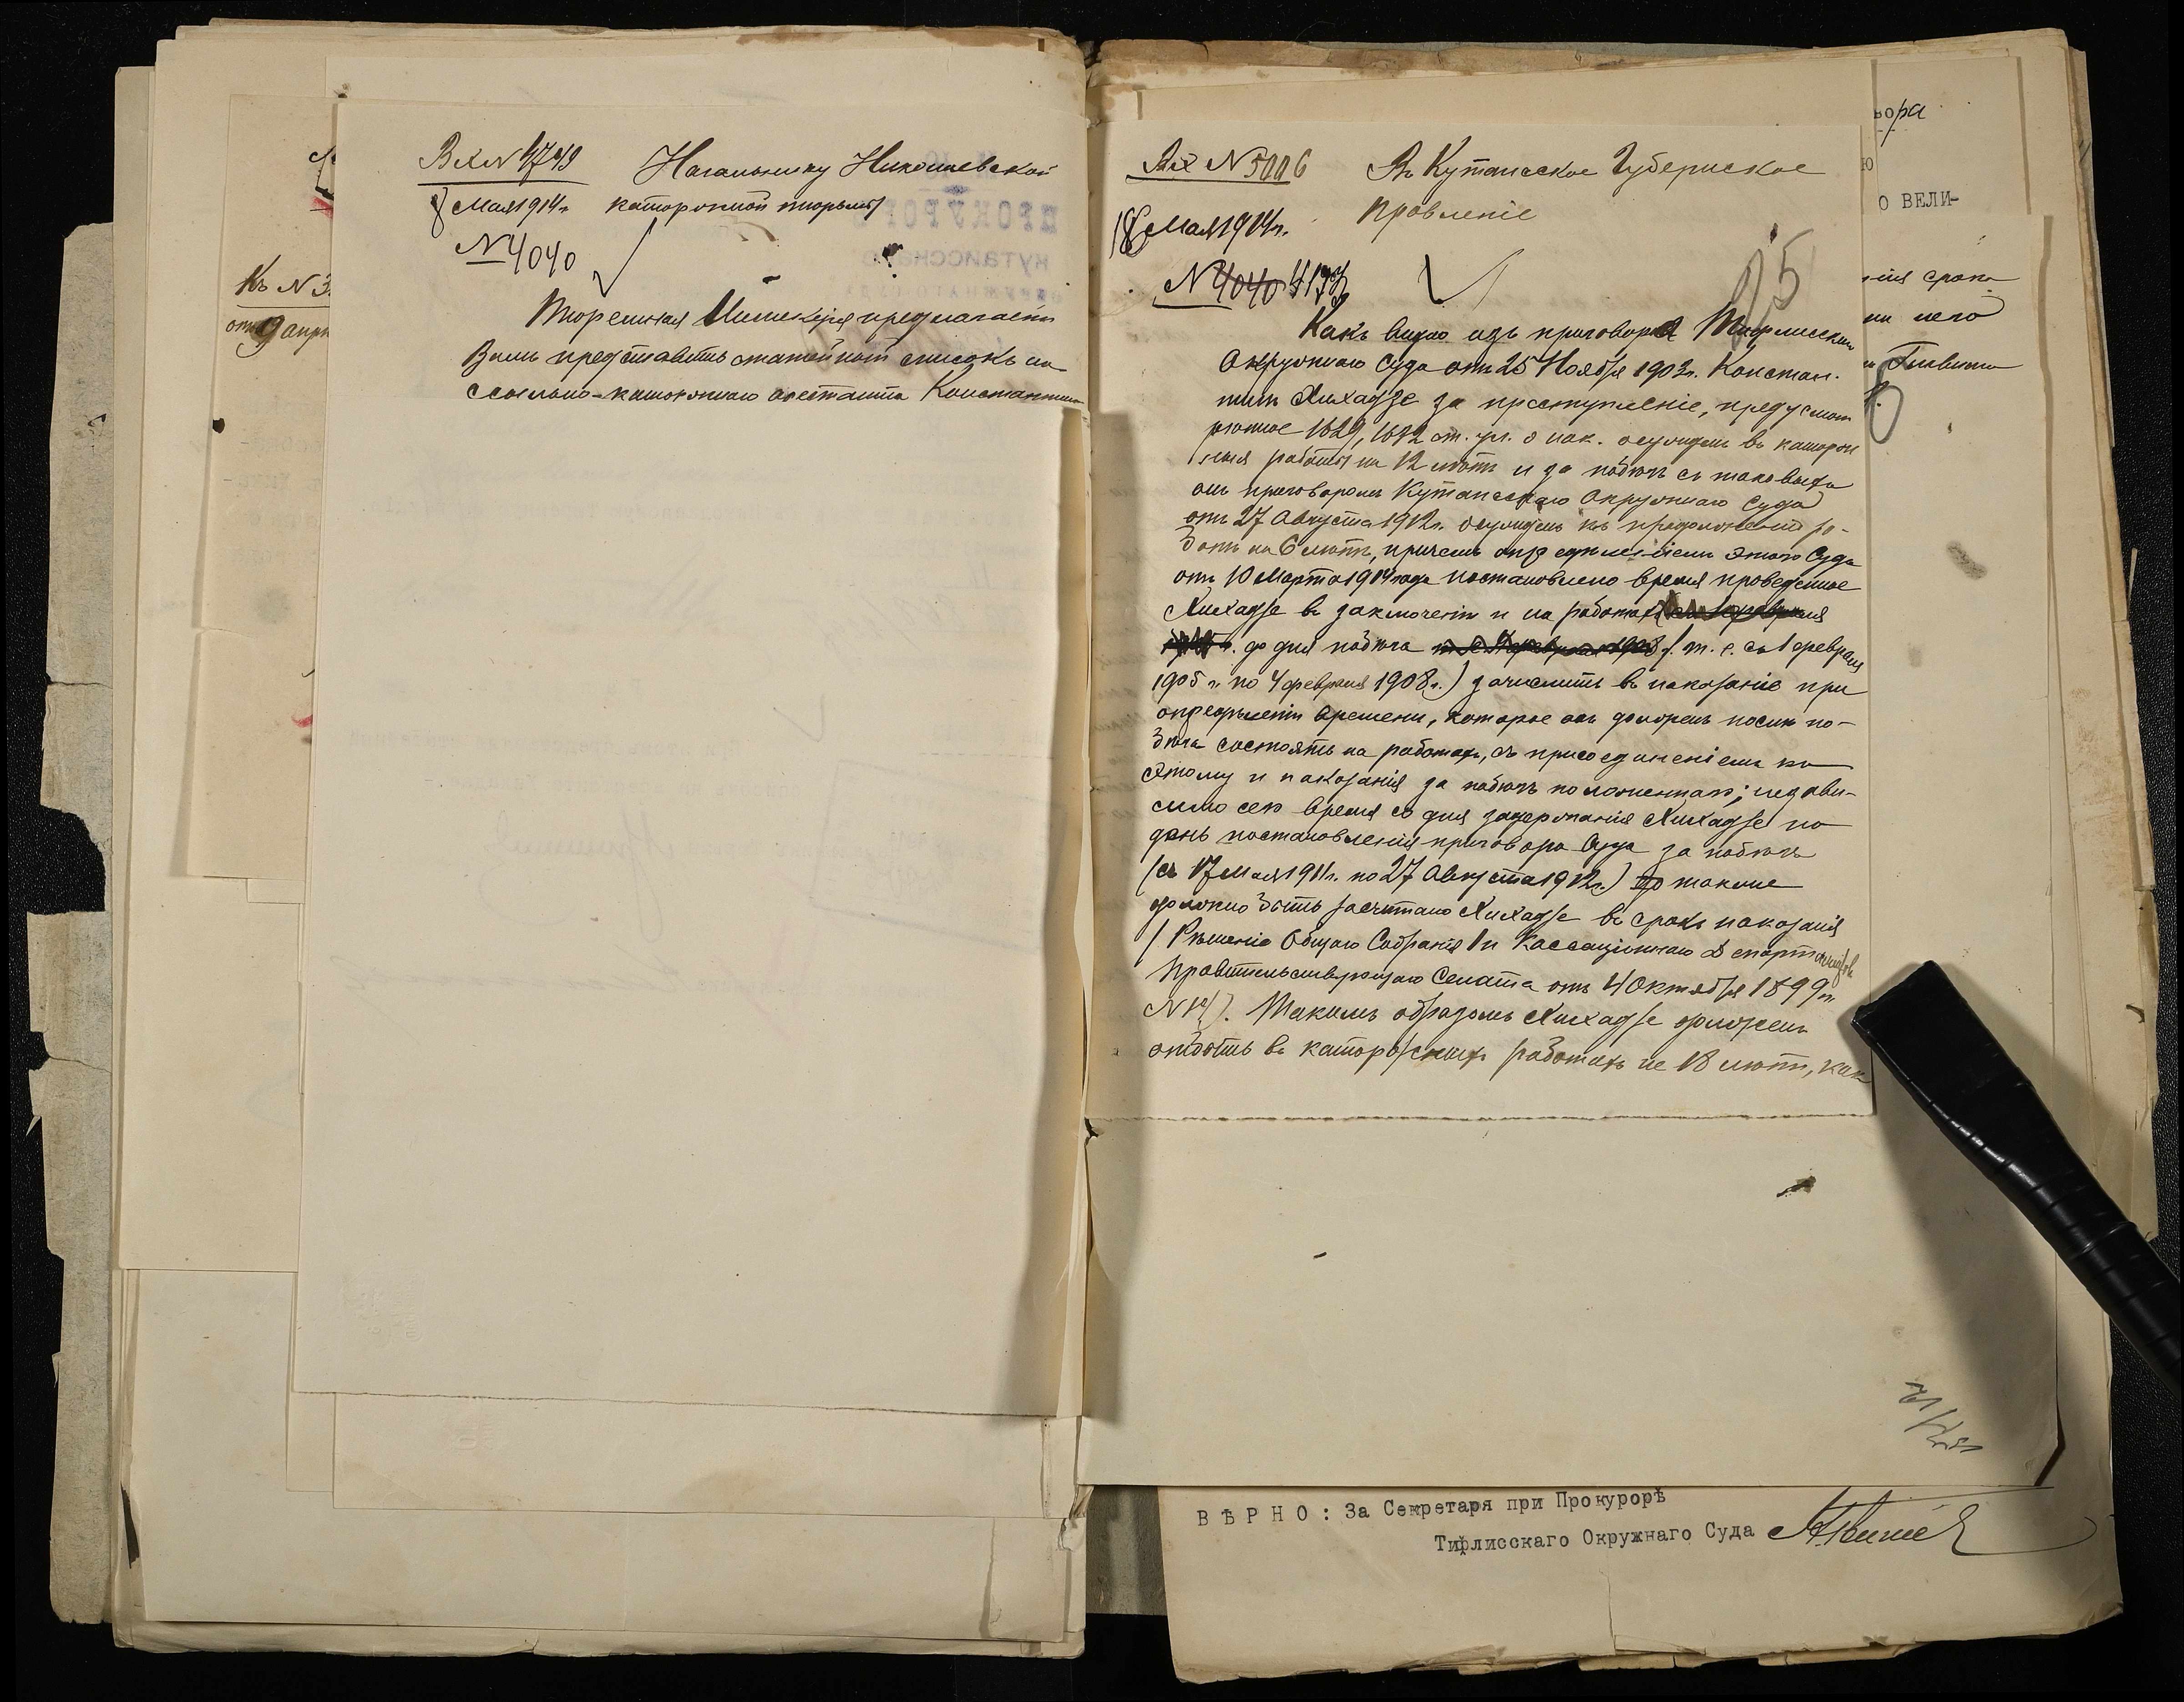 Вх N 4749
8 Мая 1914 г.
N 4040
Начальнику Николаевской
каторжной тюрьмы
Тюремная Инспекція предлагаетъ
Вамъ представить статейный списокъ на
ссыльно-каторжнаго арестанта Константина
Къ N 3
отъ 9 апрѣ
Вх N 5006
18 Мая 1914 г.
N 4040
Въ Кутаисское Губернское
Правленіе
15
Какъ видно изъ приговора Тифлисскаго
Окружнаго Суда отъ 25 Ноября 1903 г. Констан-
тинъ Хихадзе за преступленіе, предусмот
рѣнное 1629, 1632 ст. ул. о нак. осужденъ въ каторж
ныя работы на 12 лѣтъ и за побѣгъ съ таковыхъ
онъ приговоромъ Кутаисскаго Окружнаго Суда
отъ 27 Августа 1912 г. осужденъ къ продолженію ра-
ботъ на 6 лѣтъ, причемъ опредѣленіемъ этого Суда
отъ 10 Марта 1914 года постановлено время проведенное
Хихадзе въ заключеніи и на работахъ
до дня побѣга /т. е. съ 1 февраля
1905 г. по 4 февраля 1908 г.) зачислить въ наказаніе при
опредѣленіи времени, которое онъ долженъ послѣ по-
бѣга состоять на работахъ, съ присоединеніемъ къ
этому и наказанія за побѣгъ положеннаго; незави-
симо сего время со дня задержанія Хихадзе по
день постановленія приговора Суда за побѣгъ
(съ 17 Мая 1911 г. по 27 Августа 1912 г.) также
должно быть засчитано Хихадзе въ срокъ наказанія
/Рѣшеніе Общаго Собранія 1 и Кассаціоннаго Департаментовъ
Правительствующаго Сената отъ 4 Октября 1899 г.
N 14). Такимъ образомъ Хихадзе долженъ
отбыть въ каторжныхъ работахъ не 18 лѣтъ, какъ
вора
Ю
О ВЕЛИ-
нія срока
на него
ВѢРНО: За Секретаря при Прокурорѣ
Тифлисскаго Окружнаго Суда